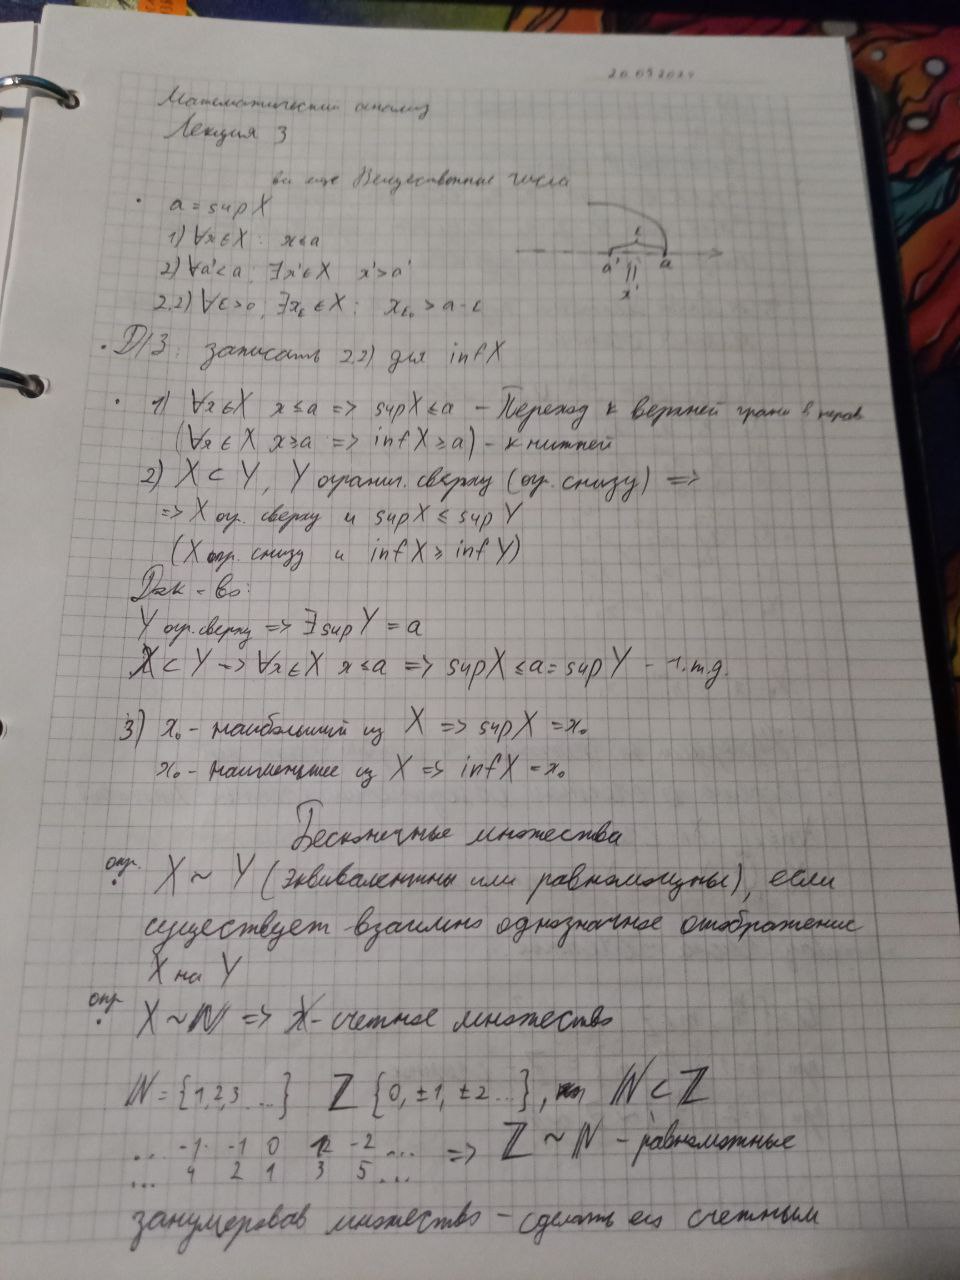 20.09.2024
Математический анализ
Лекция 3
все еще Вещественные числа
• a = sup X
1) ∀x∈X: x≤a
2) ∀a'<a: ∃x'∈X x'>a'
2.2) ∀ε>0; ∃xε∈X: xε > a-ε
ε
a' a
x'
• Д/З: записать 2.2) для inf X
• 1) ∀x∈X x≤a => sup X ≤ a - Переход к верхней грани в нерав
(∀x∈X x≥a => inf X ≥ a) - к нижней
2) X ⊂ Y, Y огранич. сверху (огр. снизу) =>
=> X огр. сверху и sup X ≤ sup Y
(X огр. снизу и inf X ≥ inf Y)
Док-во:
Y огр. сверху => ∃ sup Y = a
X ⊂ Y => ∀x∈X x≤a => sup X ≤ a = sup Y - ч.т.д.
3) x₀ - наибольший из X => sup X = x₀
x₀ - наименьшее из X => inf X = x₀
Бесконечные множества
опр.
• X ~ Y (эквивалентны или равномощны), если
существует взаимно однозначное отображение
X на Y
опр
• X ~ ℕ => X - счетное множество
ℕ = {1,2,3 ...} ℤ {0, ±1, ±2 ...}, ℕ ⊂ ℤ
... -1 -1 0 2 -2 ... => ℤ ~ ℕ - равноможные
... 4 2 1 3 5 ...
занумеровав множество - сделать его счетным